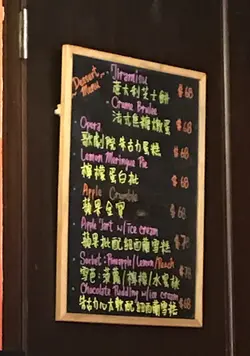 Dessert Menu
- Tiramisu
意大利芝士餅 $68
- Creme Brulee
法式焦糖燉蛋 $68
- Opera
歌劇院朱古力蛋糕 $68
- Lemon Meringue Pie
檸檬蛋白批 $68
- Apple Crumble
蘋果金寶 $68
- Apple Tart w/ ice cream
蘋果批配雲呢
- Sorbet: Pineapple/Lemon/Peach
雪芭: 菠蘿/檸檬/水蜜桃
- Chocolate Pudding w/ ice cream
朱古力心太軟配 $68